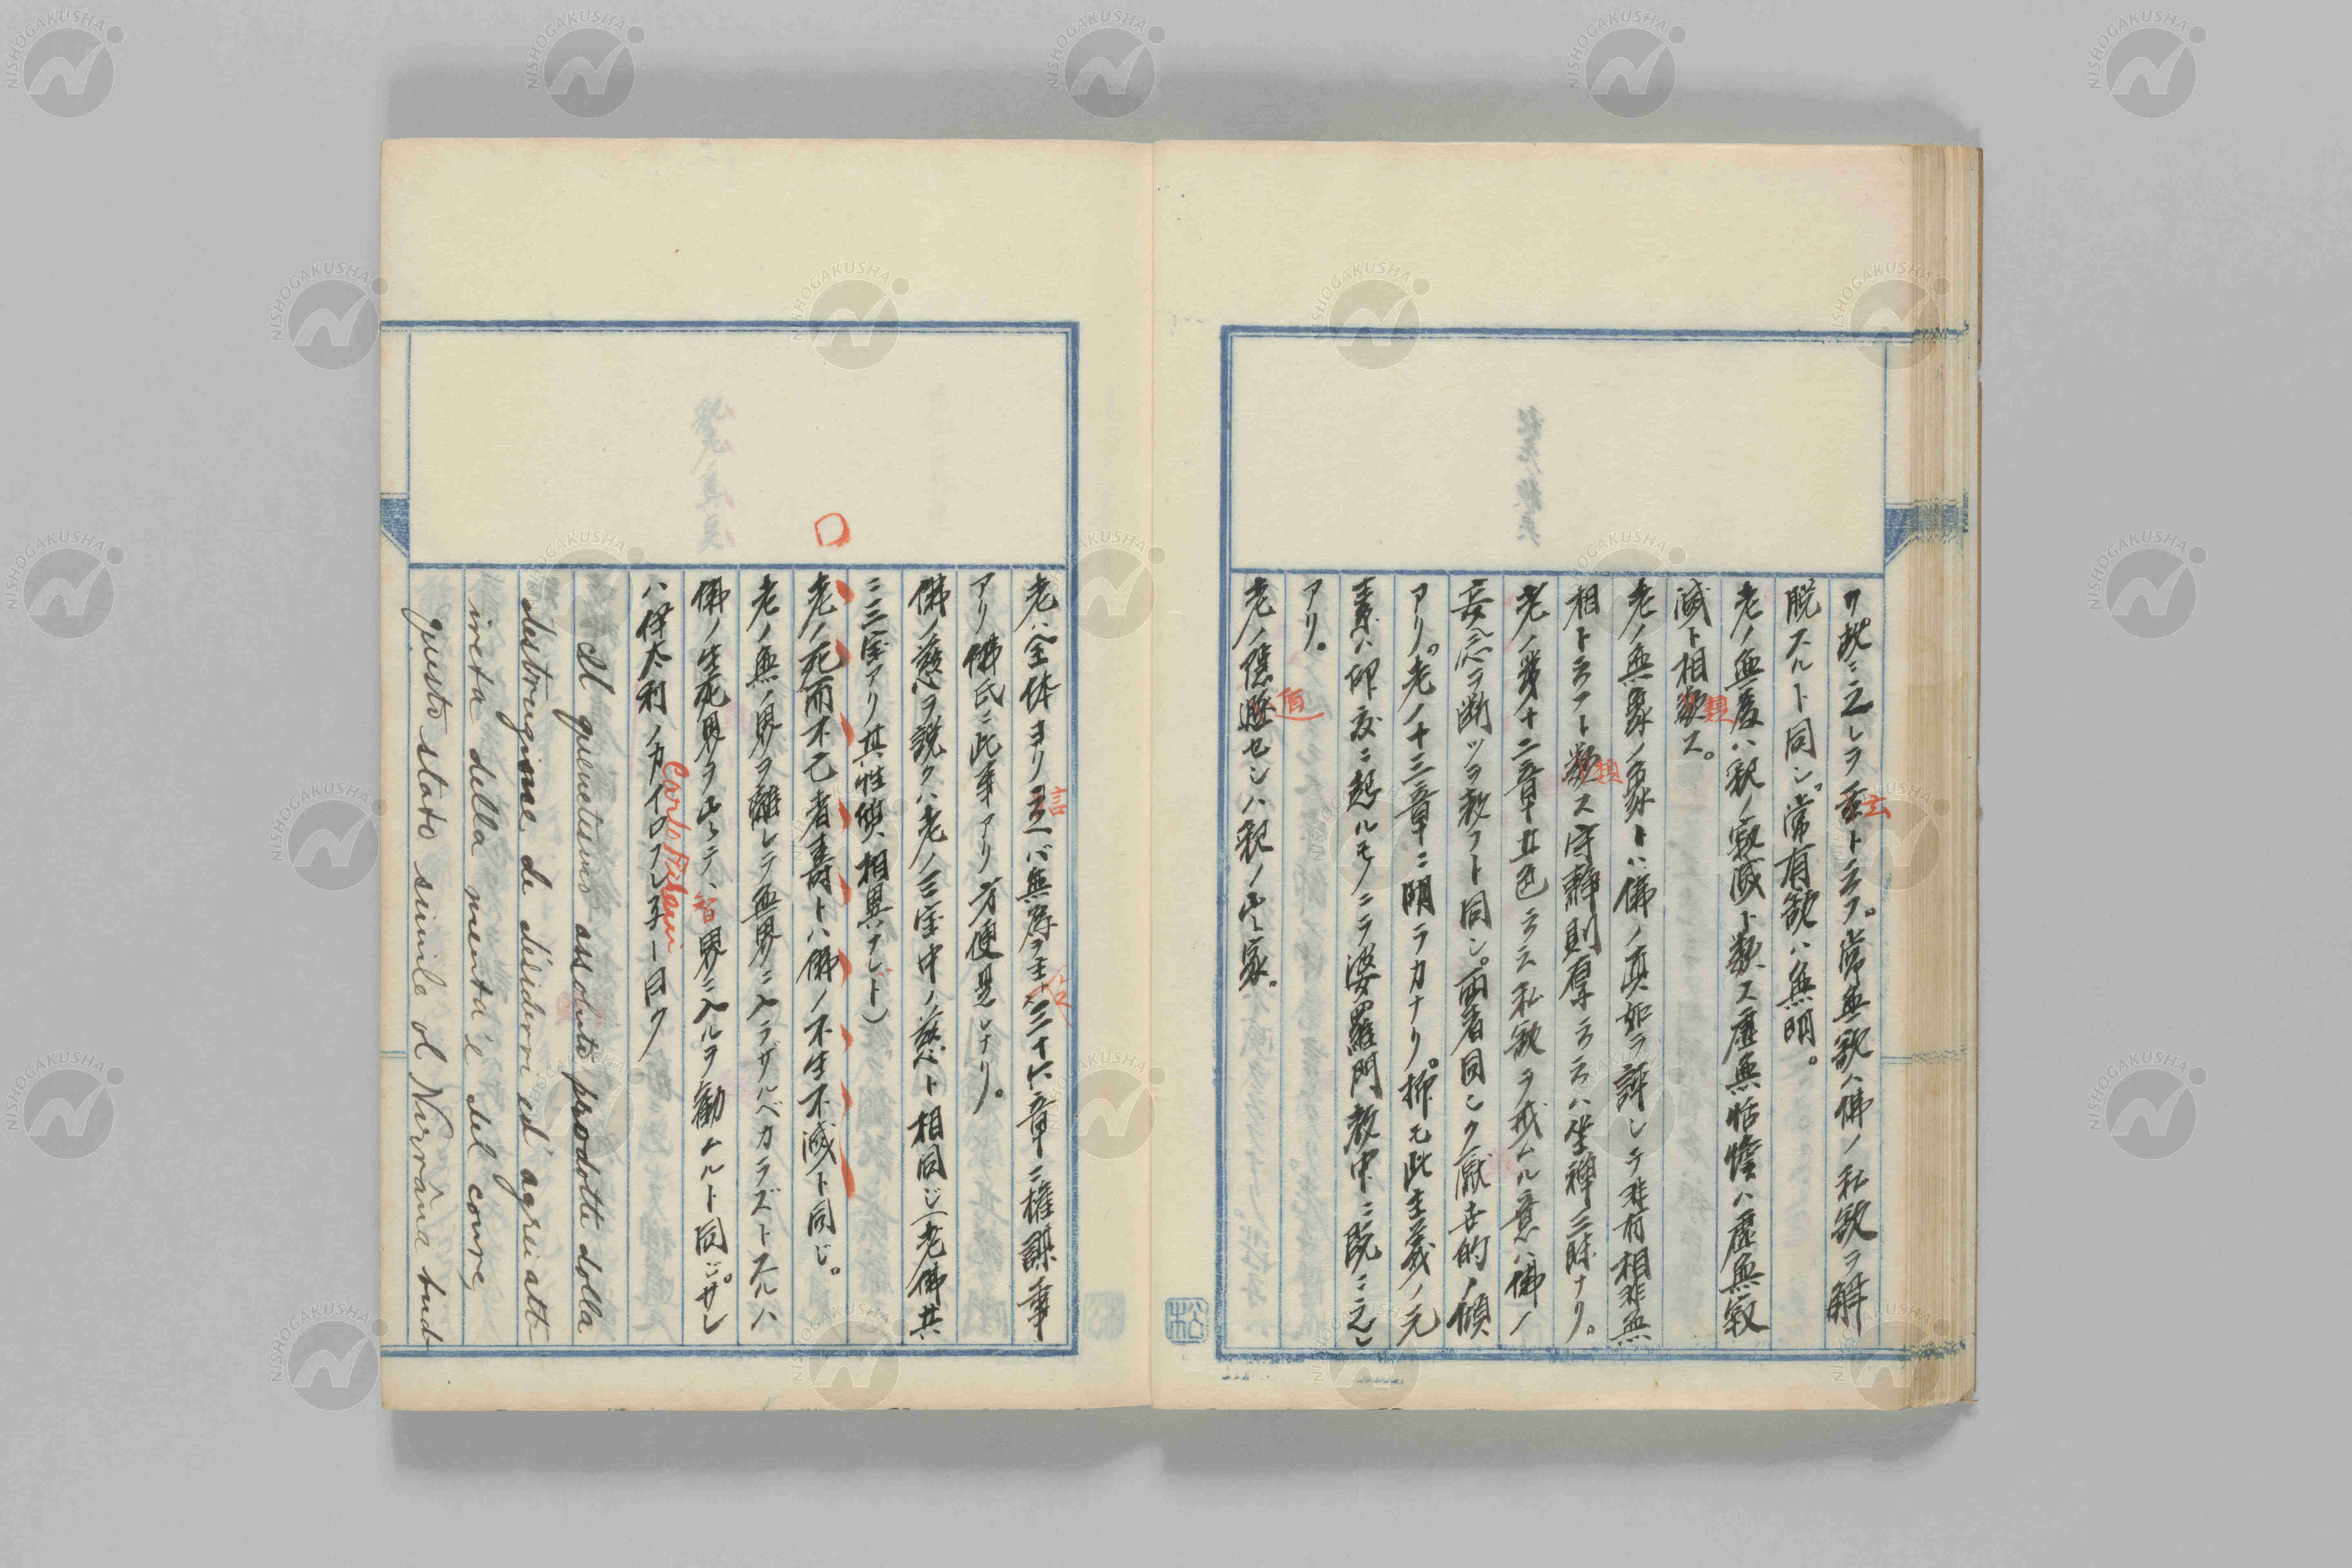 ワ故ニ之レヲ玄ト云フ。常無欲ハ佛ノ私欲ヲ解
脱スルト同シ。常有欲ハ無明。
老ノ無為ハ釈ノ寂滅ト類ス虚無恬憺ハ虚無寂
滅ト相類ス。
老ノ無象ノ象トハ佛ノ真如ヲ評シテ非有相非無
相ト云フト類ス守静則厚ク云云ハ坐禅三昧ナリ。
老ノ第十二章五色云云私欲ヲ戒ムル意ハ佛ノ
妄念ヲ断ツヲ教フト同シ。両者同シク厭世的ノ傾
アリ。老ノ十三章ニ明ラカナリ。抑モ此主義ノ元
素ハ印度ニ起ルモノニテ婆羅門教中ニ既ニ之レ
アリ。
老ノ隠遁セシハ釈ノ出家。
老ハ全体ヨリ言ヘバ無為ヲ主ト三十六章ニ権謀ノ事
アリ佛氏ニ此事アリ方便是レナリ。
佛ノ慈心ヲ説クハ老ノ三宝中ノ慈ト相同じ(老佛共
ニ三宝アリ其性質ハ相異ナレド)
老ノ死而不亡者壽トハ佛ノ不生不滅ト同じ。
老ノ無ノ界ヲ離レテ無界ニ入ラザルベカラズトスルハ
佛ノ生死界ヲ出テ、智界ニ入ルヲ勧ムルト同ジ。サレ
ハ伊太利ノカイロフレ子ー曰ク
Carlo
Il quenetismo assoluto prodotte dolla
destrugione de desiderri ed agrei att
ireta della menta e del coure,
questo stato simile ol Nirrâna bud